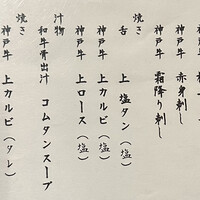 神戸牛
神戸牛 赤身刺し
神戸牛 霜降り刺し
焼き
舌 上 塩タン(塩)
神戸牛 上カルビ(塩)
神戸牛 上ロース(塩)
汁物
和牛骨出汁 コムタンスープ
焼き
神戸牛 上カルビ(タレ)